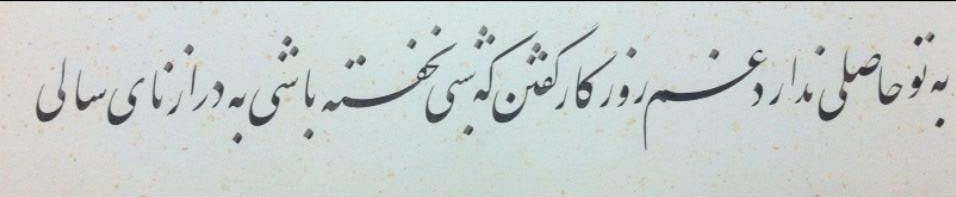 به تو حاصلی ندارد غم روزگار گفتن که شبی نخفته باشی به درازنای سالی